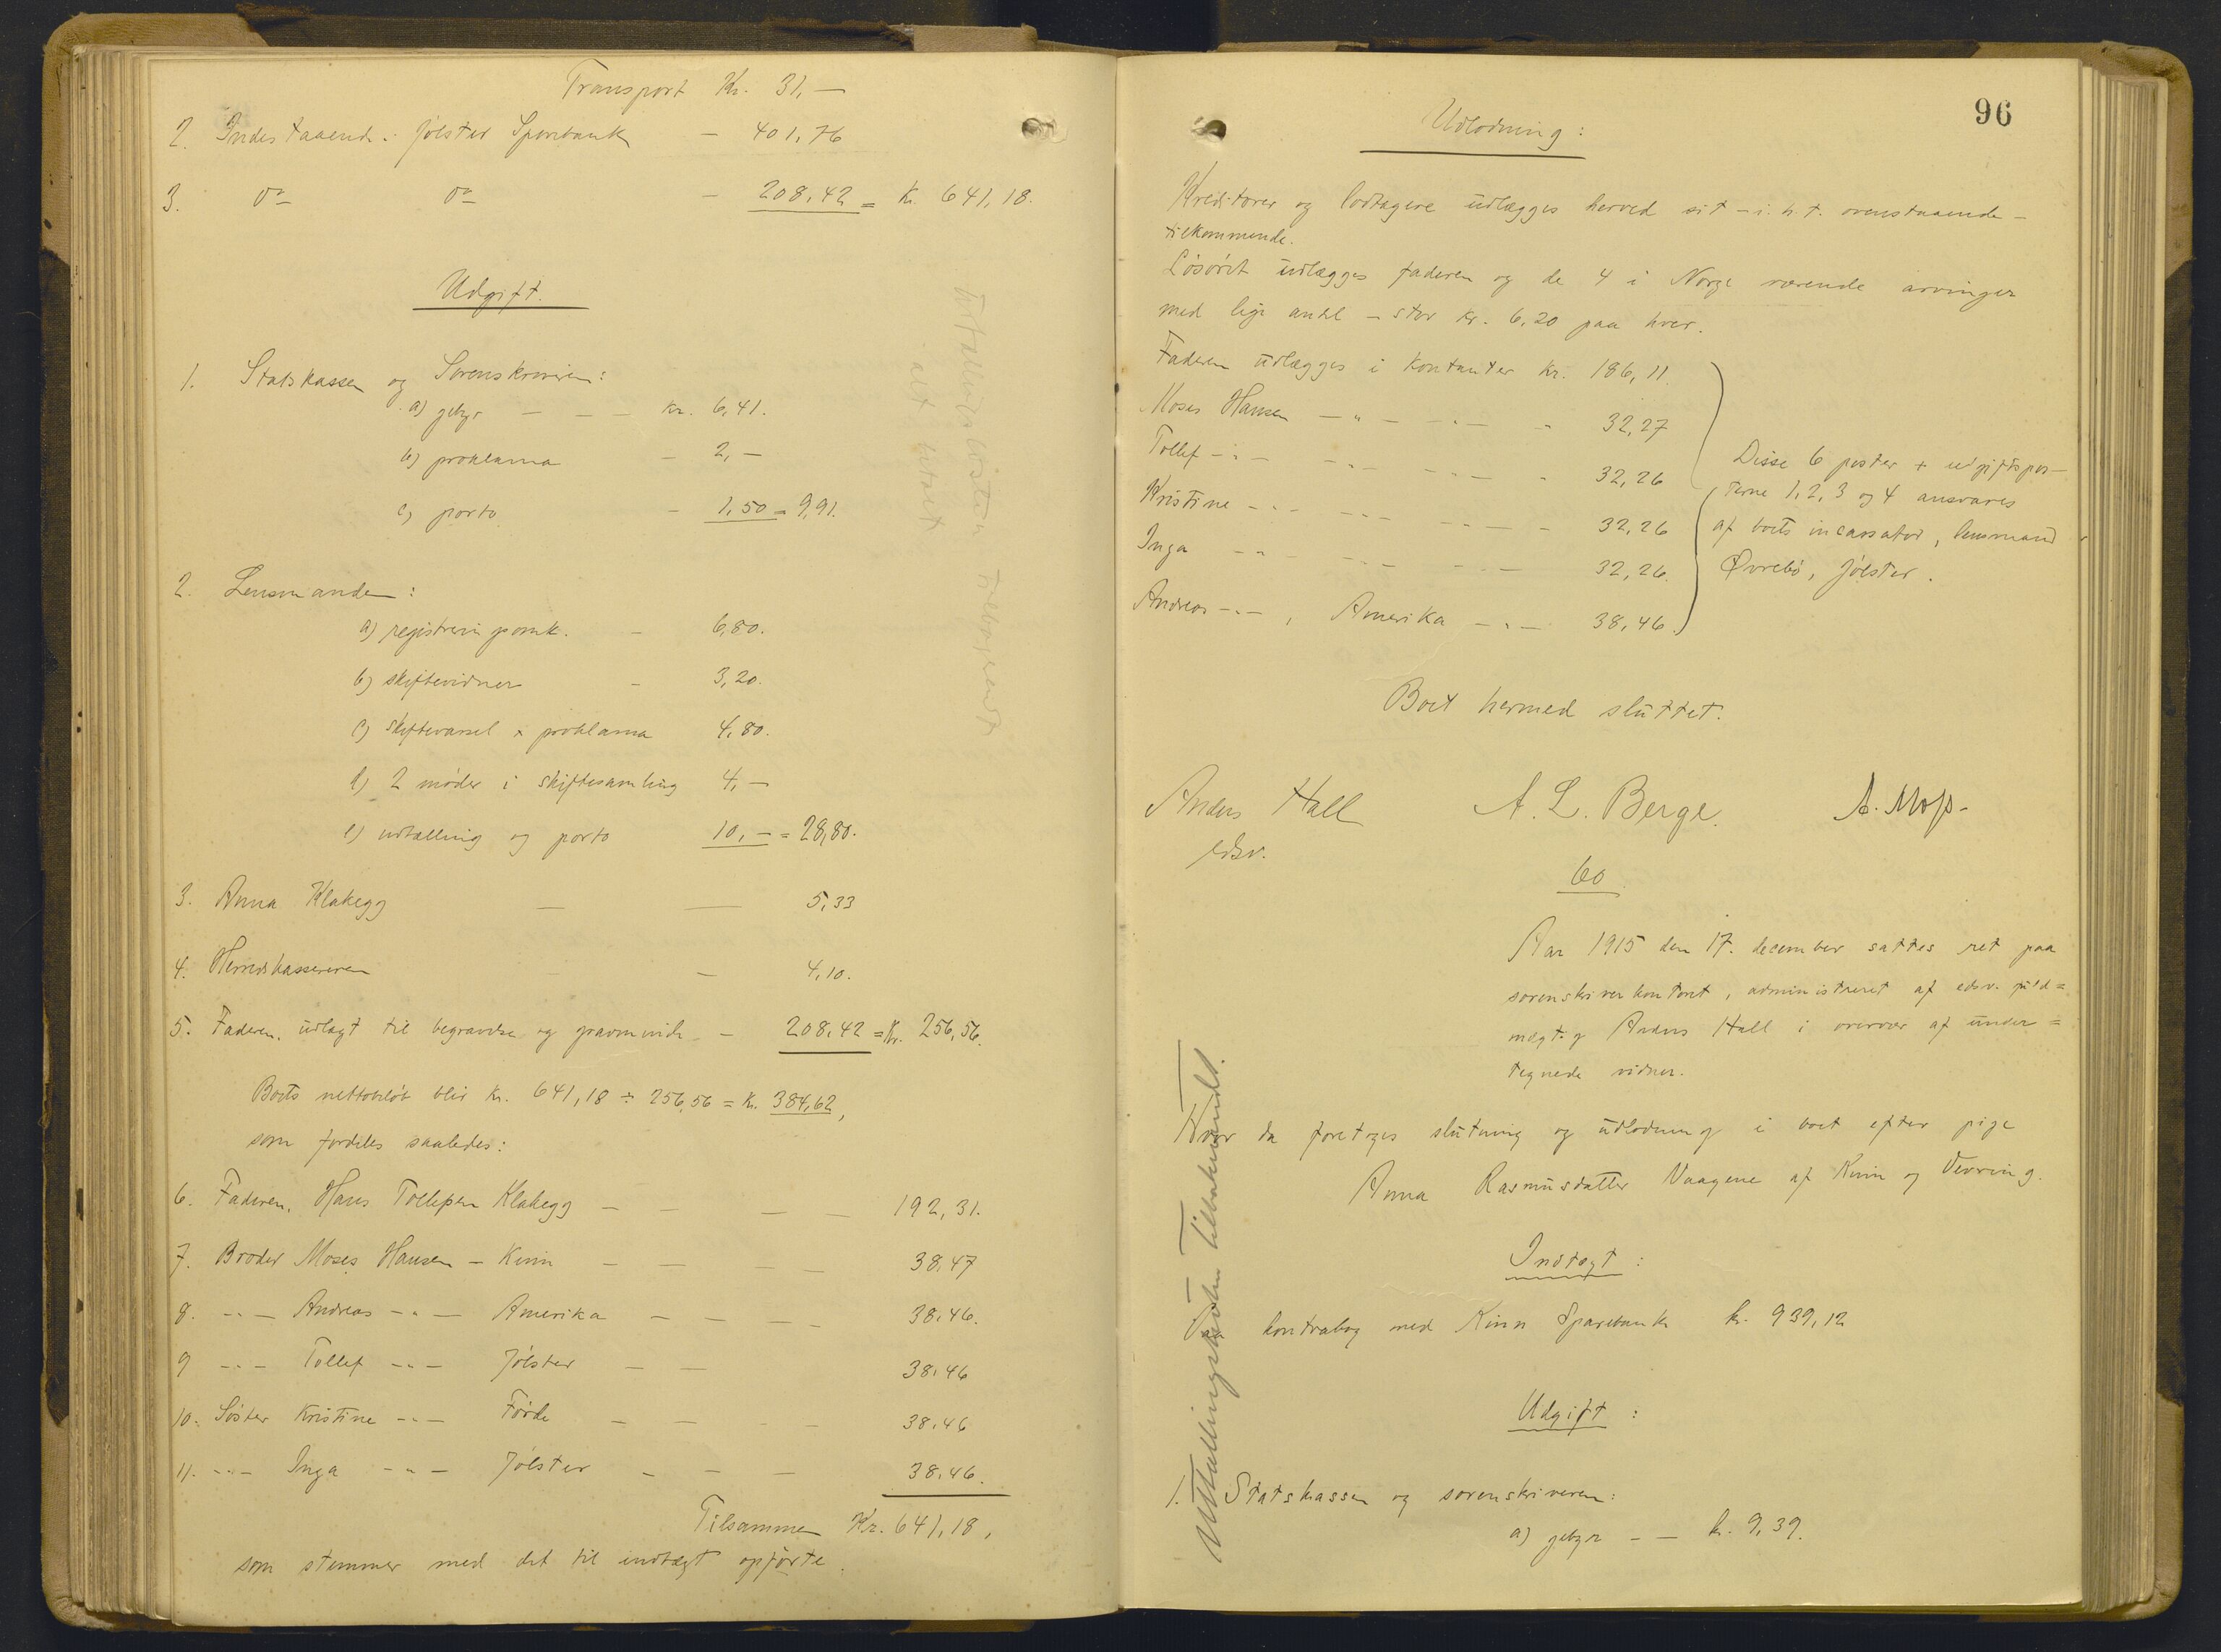 Transport Kr. 31,—
2. Indestaaende i Jølster Sparebank — 401,76
3. do do — 208,42 = Kr. 641,18.
Udgift.
1. Statskassen og Sorenskriveren:
a) gebyr — — — kr. 6,41.
b) proklama — 2,—
c) porto — 1,50 = 9,91.
2. Lensmanden:
a) registreringsomk. — 6,80.
b) skiftevidner — 3,20.
c) skiftevarsel + proklama 4,80.
d) 2 møder i skiftesamling 4,—
e) udtælling og porto 10,— = 28,80.
3. Anna Klakegg — — 5,33
4. Herredskassereren — — 4,10.
5. Faderen, udlagt til begravelse og gravminde — 208,42 = Kr. 256,56.
Boets nettobeløb blir kr. 641,18 ÷ 256,56 = kr. 384,62,
som fordeles saaledes:
6. Faderen, Hans Tollefsen Klakegg — — — — 192,31.
7. Broder Moses Hansen — Kinn — — — — 38,47
8. —"— Andreas —"— Amerika — — — — 38,46.
9 —"— Tollef —"— Jølster — — 38,46
10. Søster Kristine —"— Førde — — — — 38,46
11. —"— Inga —"— Jølster — — — 38,46.
Tilsammen Kr. 641,18,
som stemmer med det til indtægt opførte.
Udtællingslisten tilbagesendt
96
Udlodning:
Kreditorer og lodtagere udlægges herved sit — i. h. t. ovenstaaende —
tilkommende.
Løsøret udlægges faderen og de 4 i Norge værende arvinger
med lige andel — stor kr. 6,20 paa hver.
Faderen udlægges i kontanter kr. 186,11.
Moses Hansen —"— —"— " 32,27
Tollef —"— —"— —"— " 32,26
Kristine —"— —"— —"— " 32,26
Inga —"— —"— —"— 32,26.
Andreas —"—, Amerika —"— 38,46.
Disse 6 poster + udgiftspos-
terne 1, 2, 3 og 4 ansvares
af boets incassator, lensmand
Øvrebø, Jølster.
Boet hermed sluttet.
Anders Hall A. L. Berge. A. Moss-
edsv.
60
Aar 1915 den 17. december sattes ret paa
sorenskriverkontoret, administreret af edsv. fuld=
mægtig Anders Hall i overvær af under=
tegnede vidner.
Hvor da foretoges slutning og udlodning i boet efter pige
Anna Rasmusdatter Vaagene af Kinn og Vevring.
Indtægt:
kontrabog med Kinn Sparebank kr. 939,12
Udgift:
1. Statskassen og sorenskriveren:
a) gebyr — — kr. 9,39.
Udtællingslisten tilbakesendt.